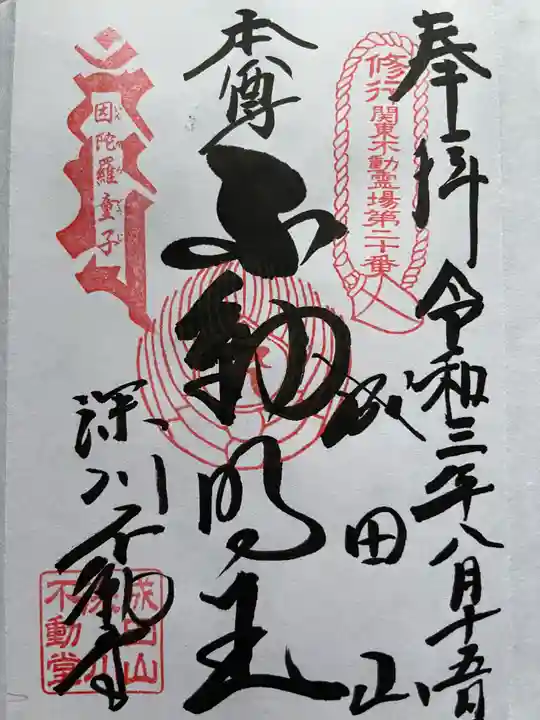 奉拝 令和三年八月十五日
修行 関東不動霊場第二十番
成田山
本尊
不動明王
因陀羅童子
深川不動尊
成田山
深川
不動堂